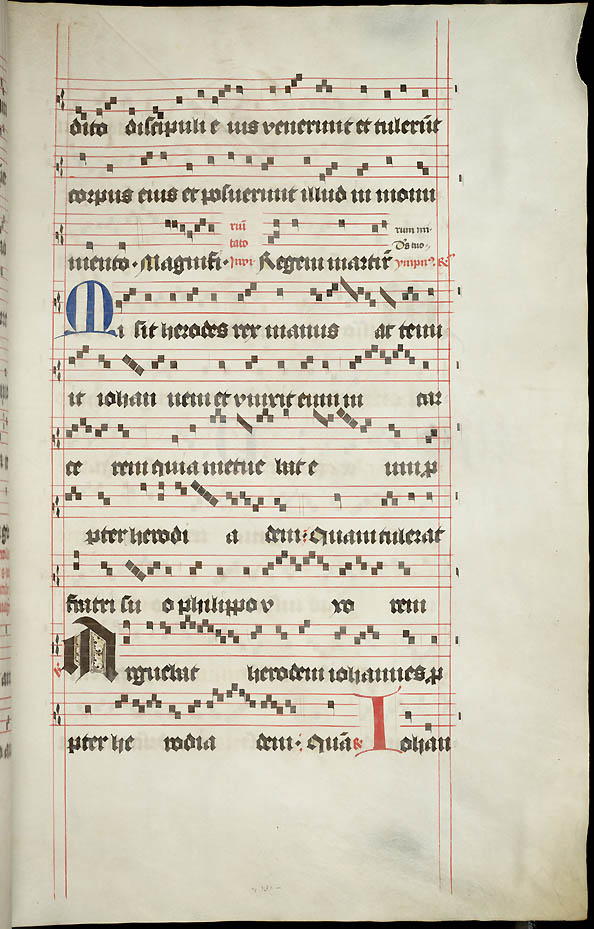 dito discipuli e ius venerunt et tulerūt
corpus eius et posuerunt illud in monu
mento. Magnifi. Regem martir̄
Mi sit herodes rex manus ac tenu
it iohan nem et vinxit eum in car
ce rem quia metue bat e um. ꝓ
pter herodi a dem. Quam tulerat
fratri su o philippo v xo rem
Arguebat herodem iohannes. ꝓ
pter he rodia dem. Quā Iohan